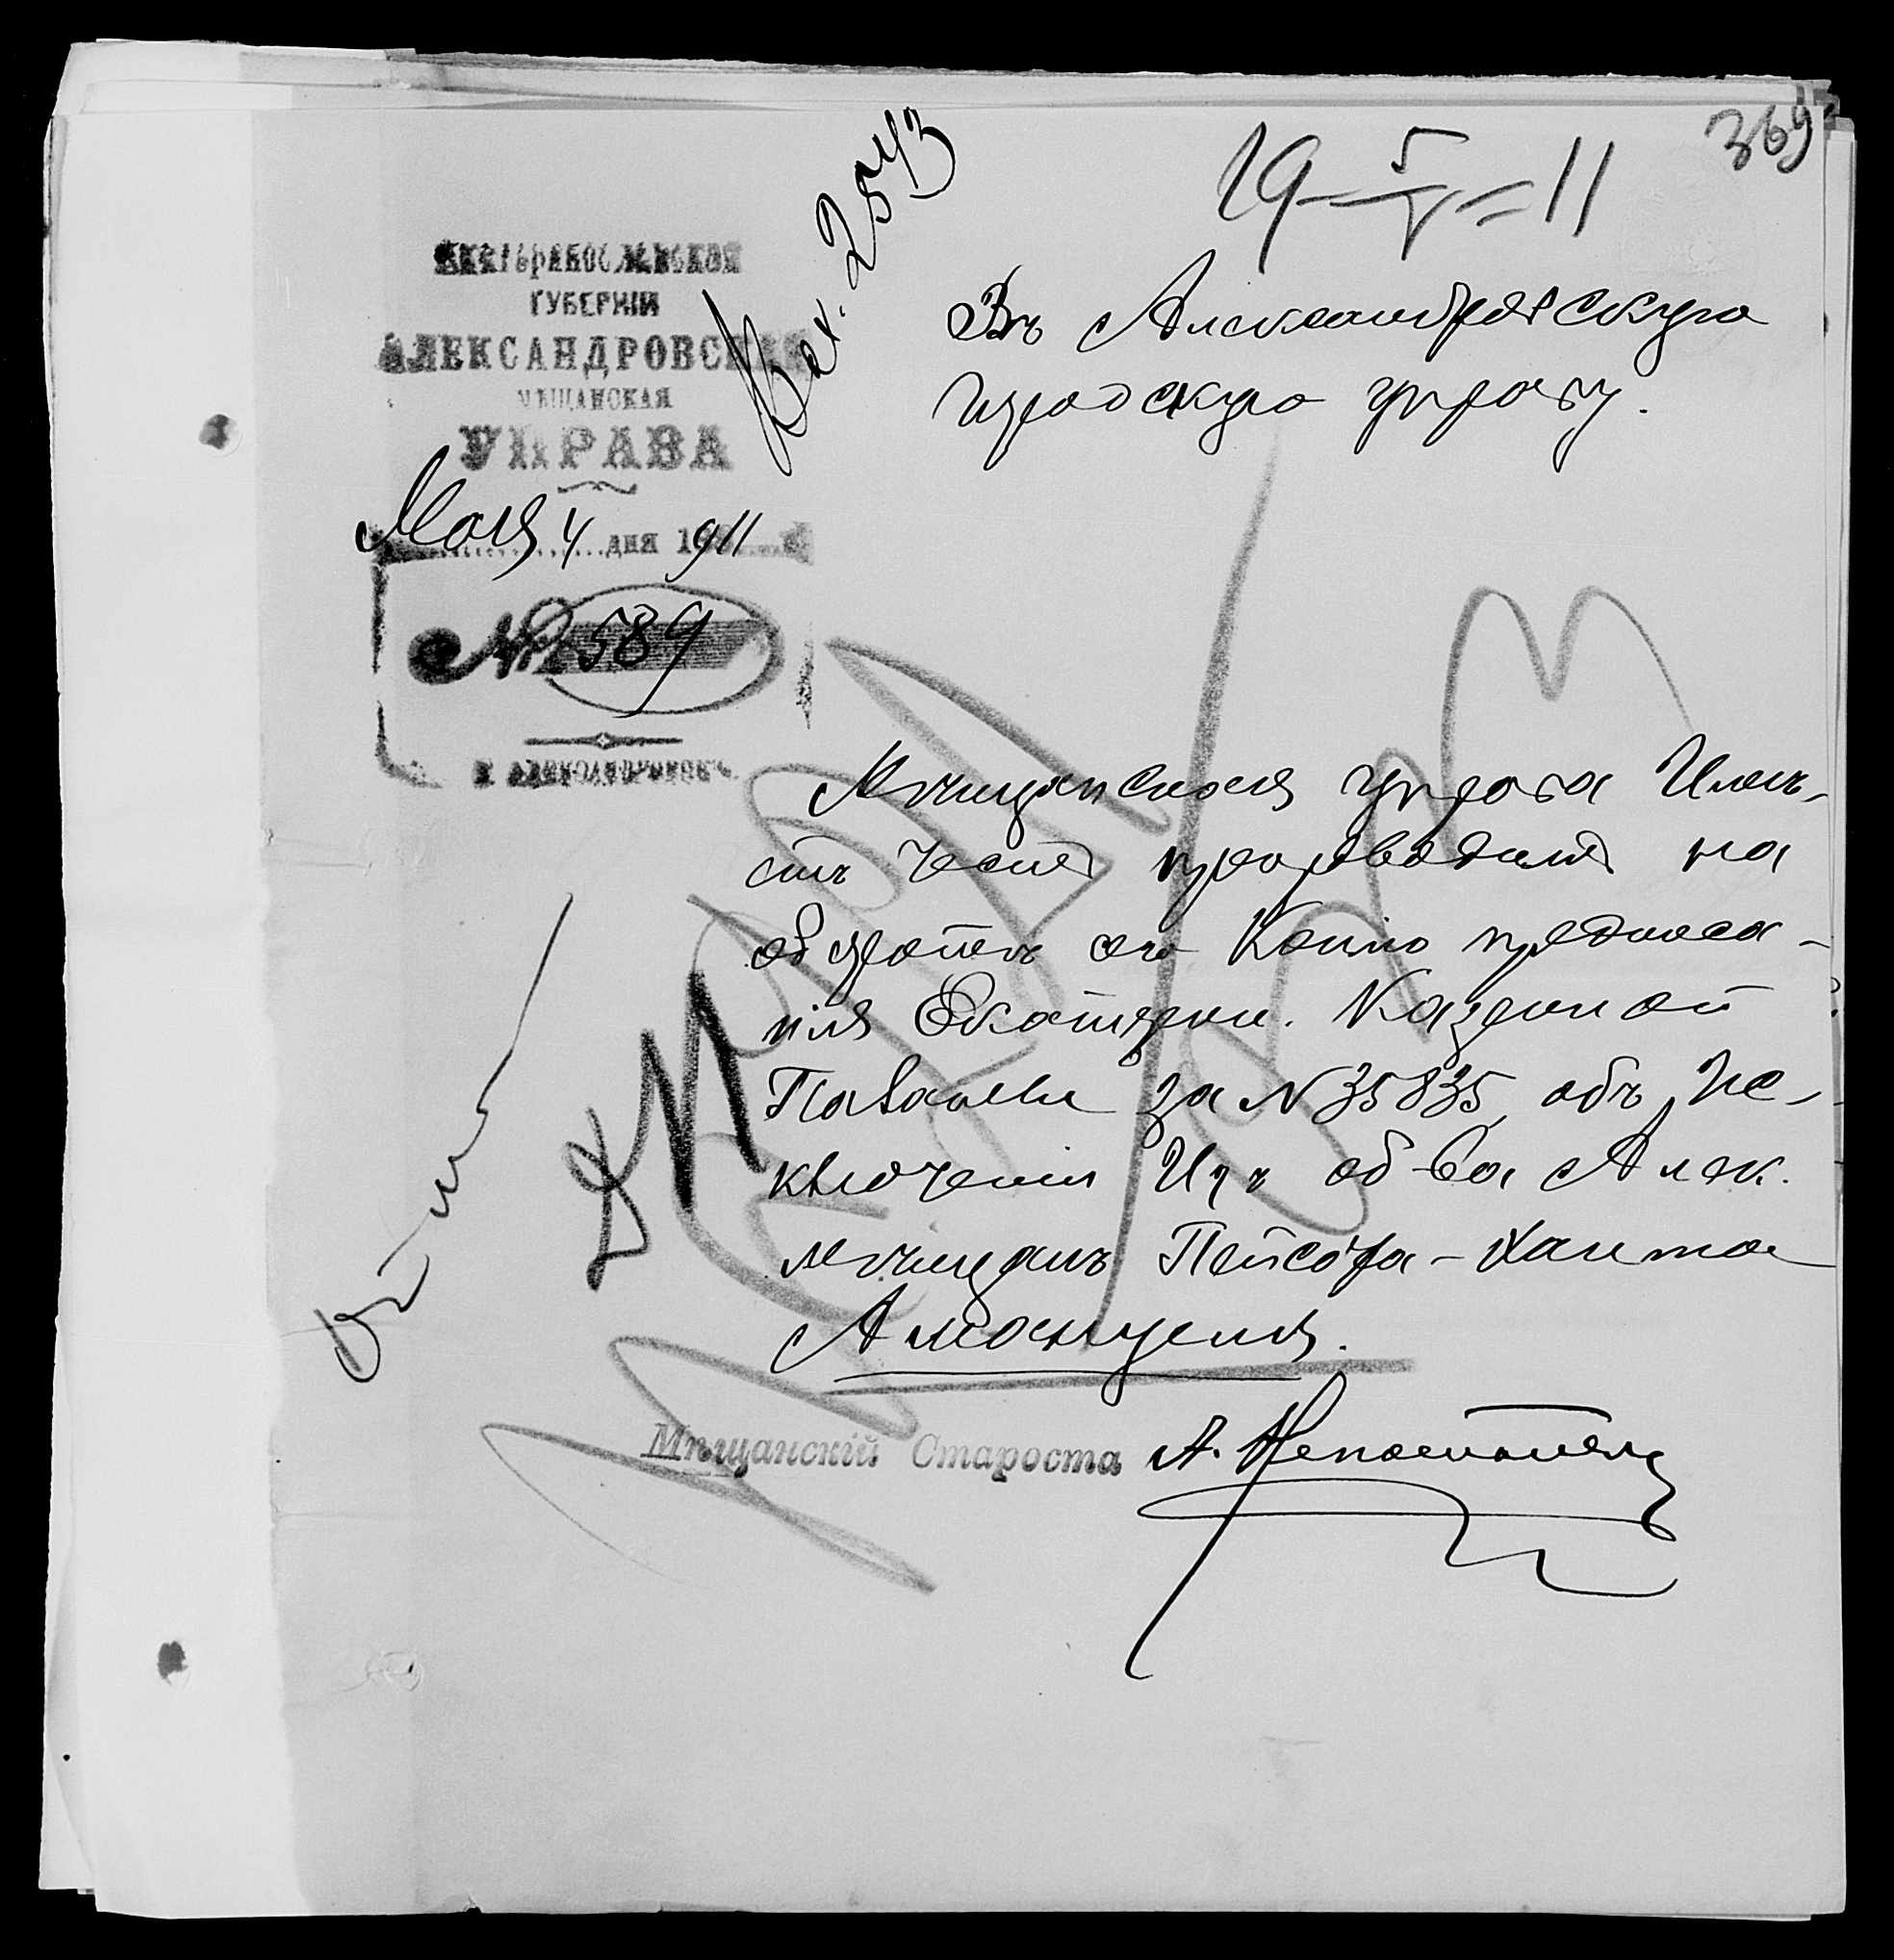 369
19 5/V 11
Вх. 2543
ЕКАТЕРИНОСЛАВСКОЙ
ГУБЕРНІИ
АЛЕКСАНДРОВСКАЯ
МѢЩАНСКАЯ
УПРАВА
Мая 4 дня 1911
№ 589
г. АЛЕКСАНДРОВСКЪ
Въ Александровскую
Городскую управу.
Мѣщанская управа Имѣ-
етъ честь препроводить на
обороте сего Копію предписа-
нія Екатерин. Казенной
Палаты за № 35835, объ Ис-
ключеніи Изъ об-ва Алек.
мѣщанъ Пейсаха-Хаима
Амануеля.
Мѣщанскій Староста А.